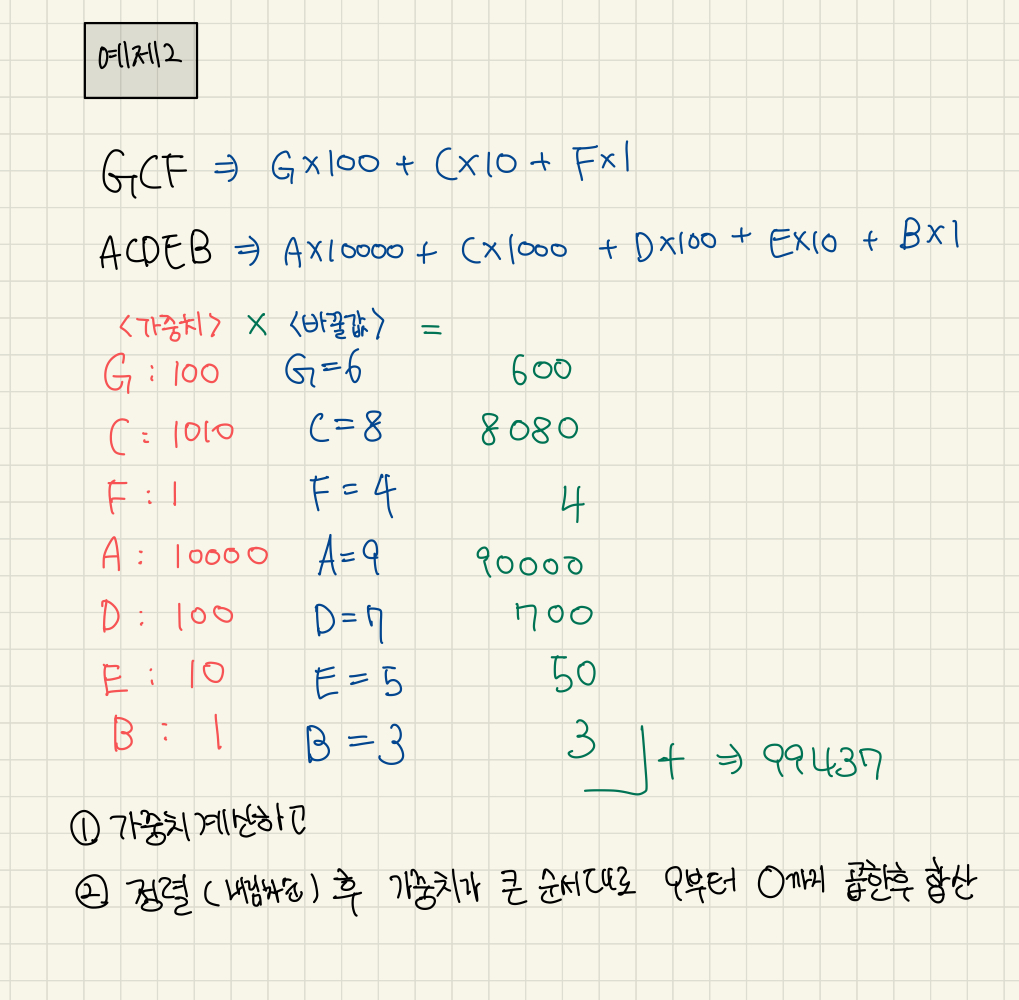 예제2
GCF ⇒ G×100 + C×10 + F×1
ACDEB ⇒ A×10000 + C×1000 + D×100 + E×10 + B×1
<가중치> × <바꿀값> =
G : 100 G=6 600
C : 1010 C=8 8080
F : 1 F=4 4
A : 10000 A=9 90000
D : 100 D=7 700
E : 10 E=5 50
B : 1 B=3 3 + ⇒ 99437
① 가중치 계산하고
② 정렬(내림차순) 후 가중치가 큰 순서대로 9부터 0까지 곱한후 합산